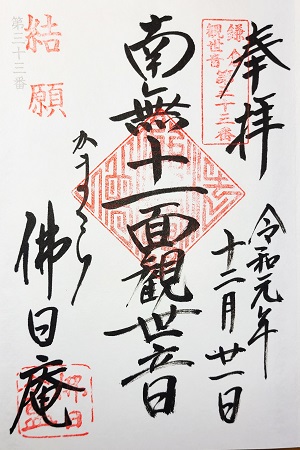 奉拝
令和元年
十二月廿一日
鎌倉
観世音
第三十三番
南無十一面観世音
かまくら
佛日庵
結願
第三十三番